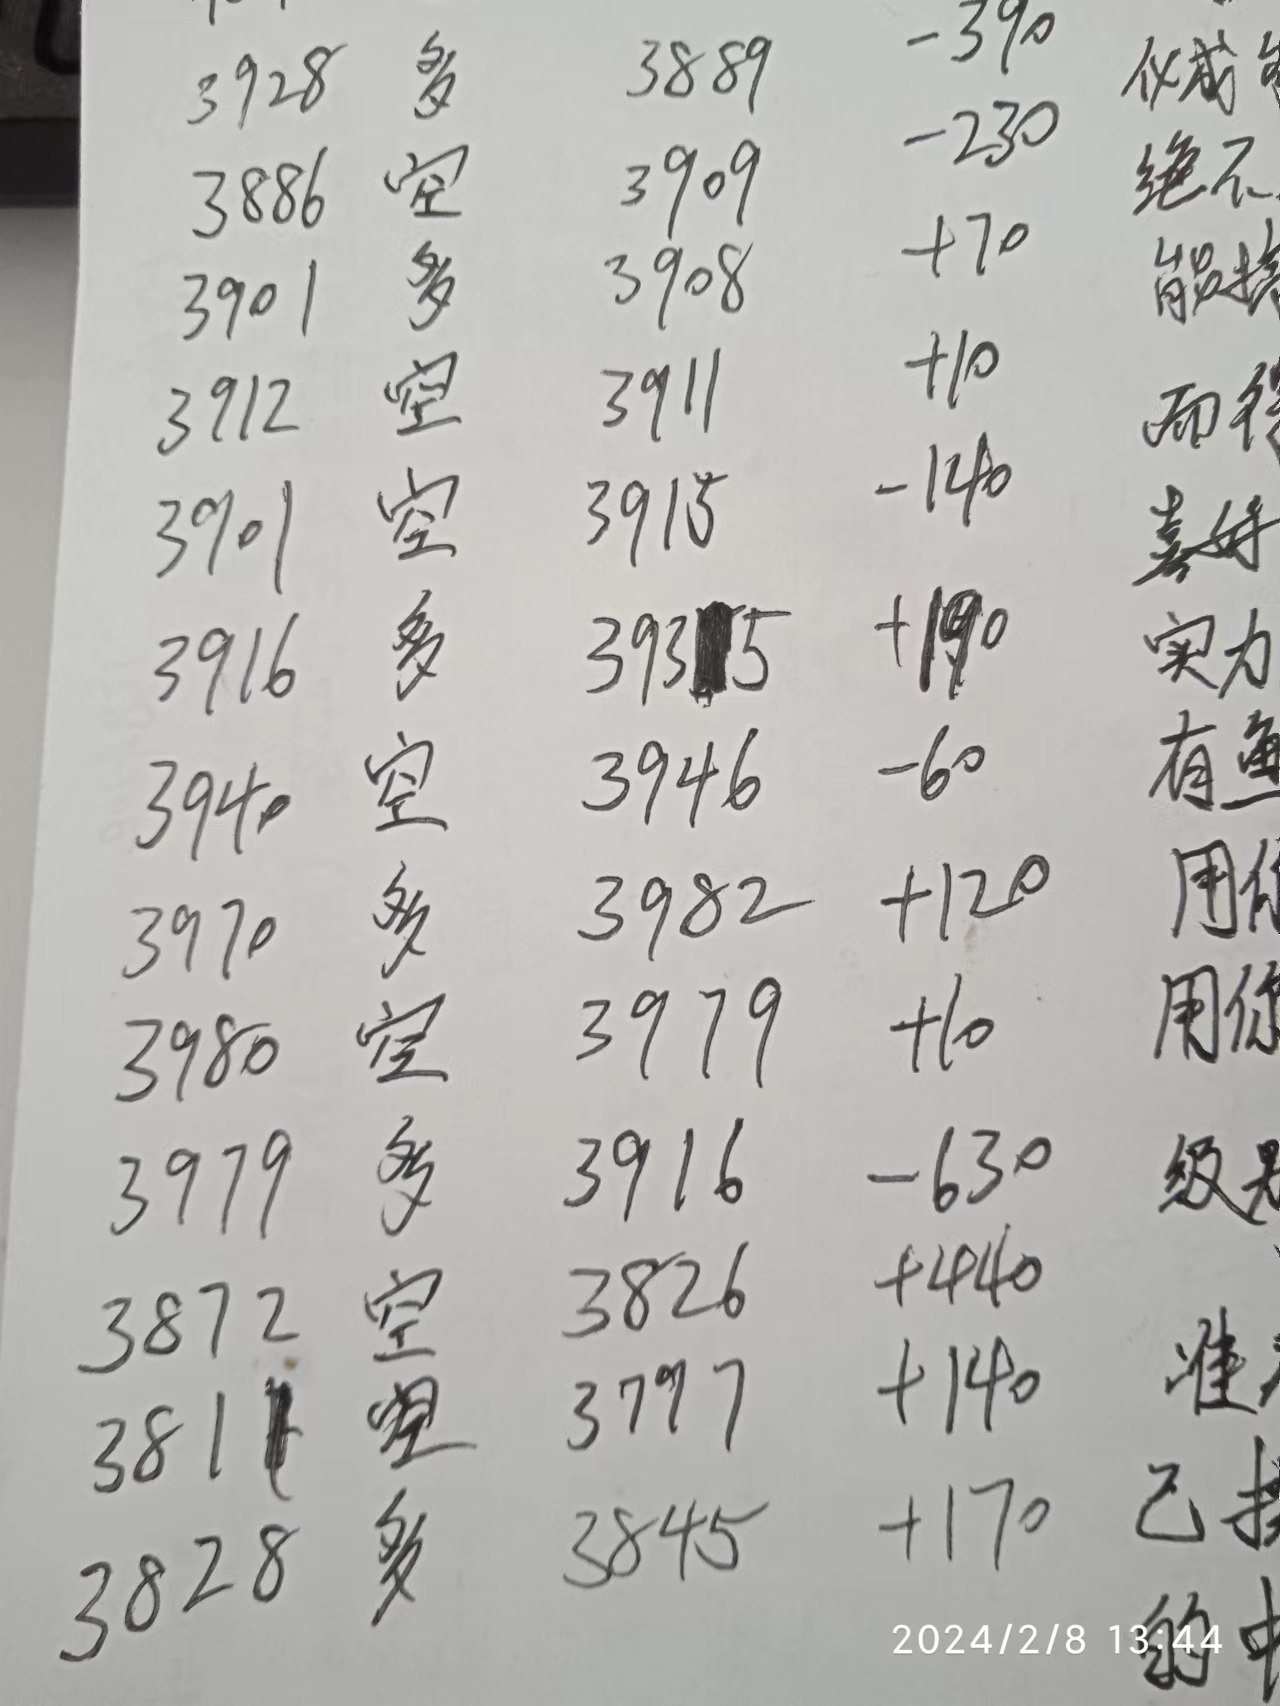 3928 多 3889 -390 仪或
3886 空 3909 -230 绝不
3901 多 3908 +70 能接
3912 空 3911 +10 而
3901 空 3915 -140 喜好
3916 多 3935 +190 实力
3940 空 3946 -60 有鱼
3970 多 3982 +120 用你
3980 空 3979 +10 用你
3979 多 3916 -630 级是
3872 空 3826 +440
3811 空 3797 +140 准
3828 多 3845 +170 己
的中
2024/2/8 13:44